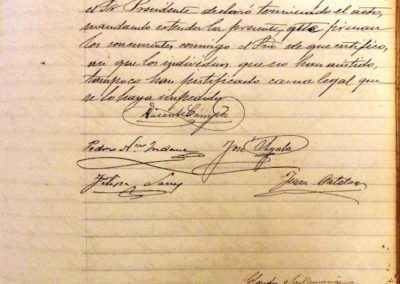 el Sor Presidente declaró terminado el acto,
mandando estender la presente, que firman
los concurrentes conmigo el Srio de que certifico,
asi que los individuos que no han asistido,
tampoco han justificado causa legal que
se lo haya impedido
Vicente Campos
Pedro José Ayala
Felipe Juan